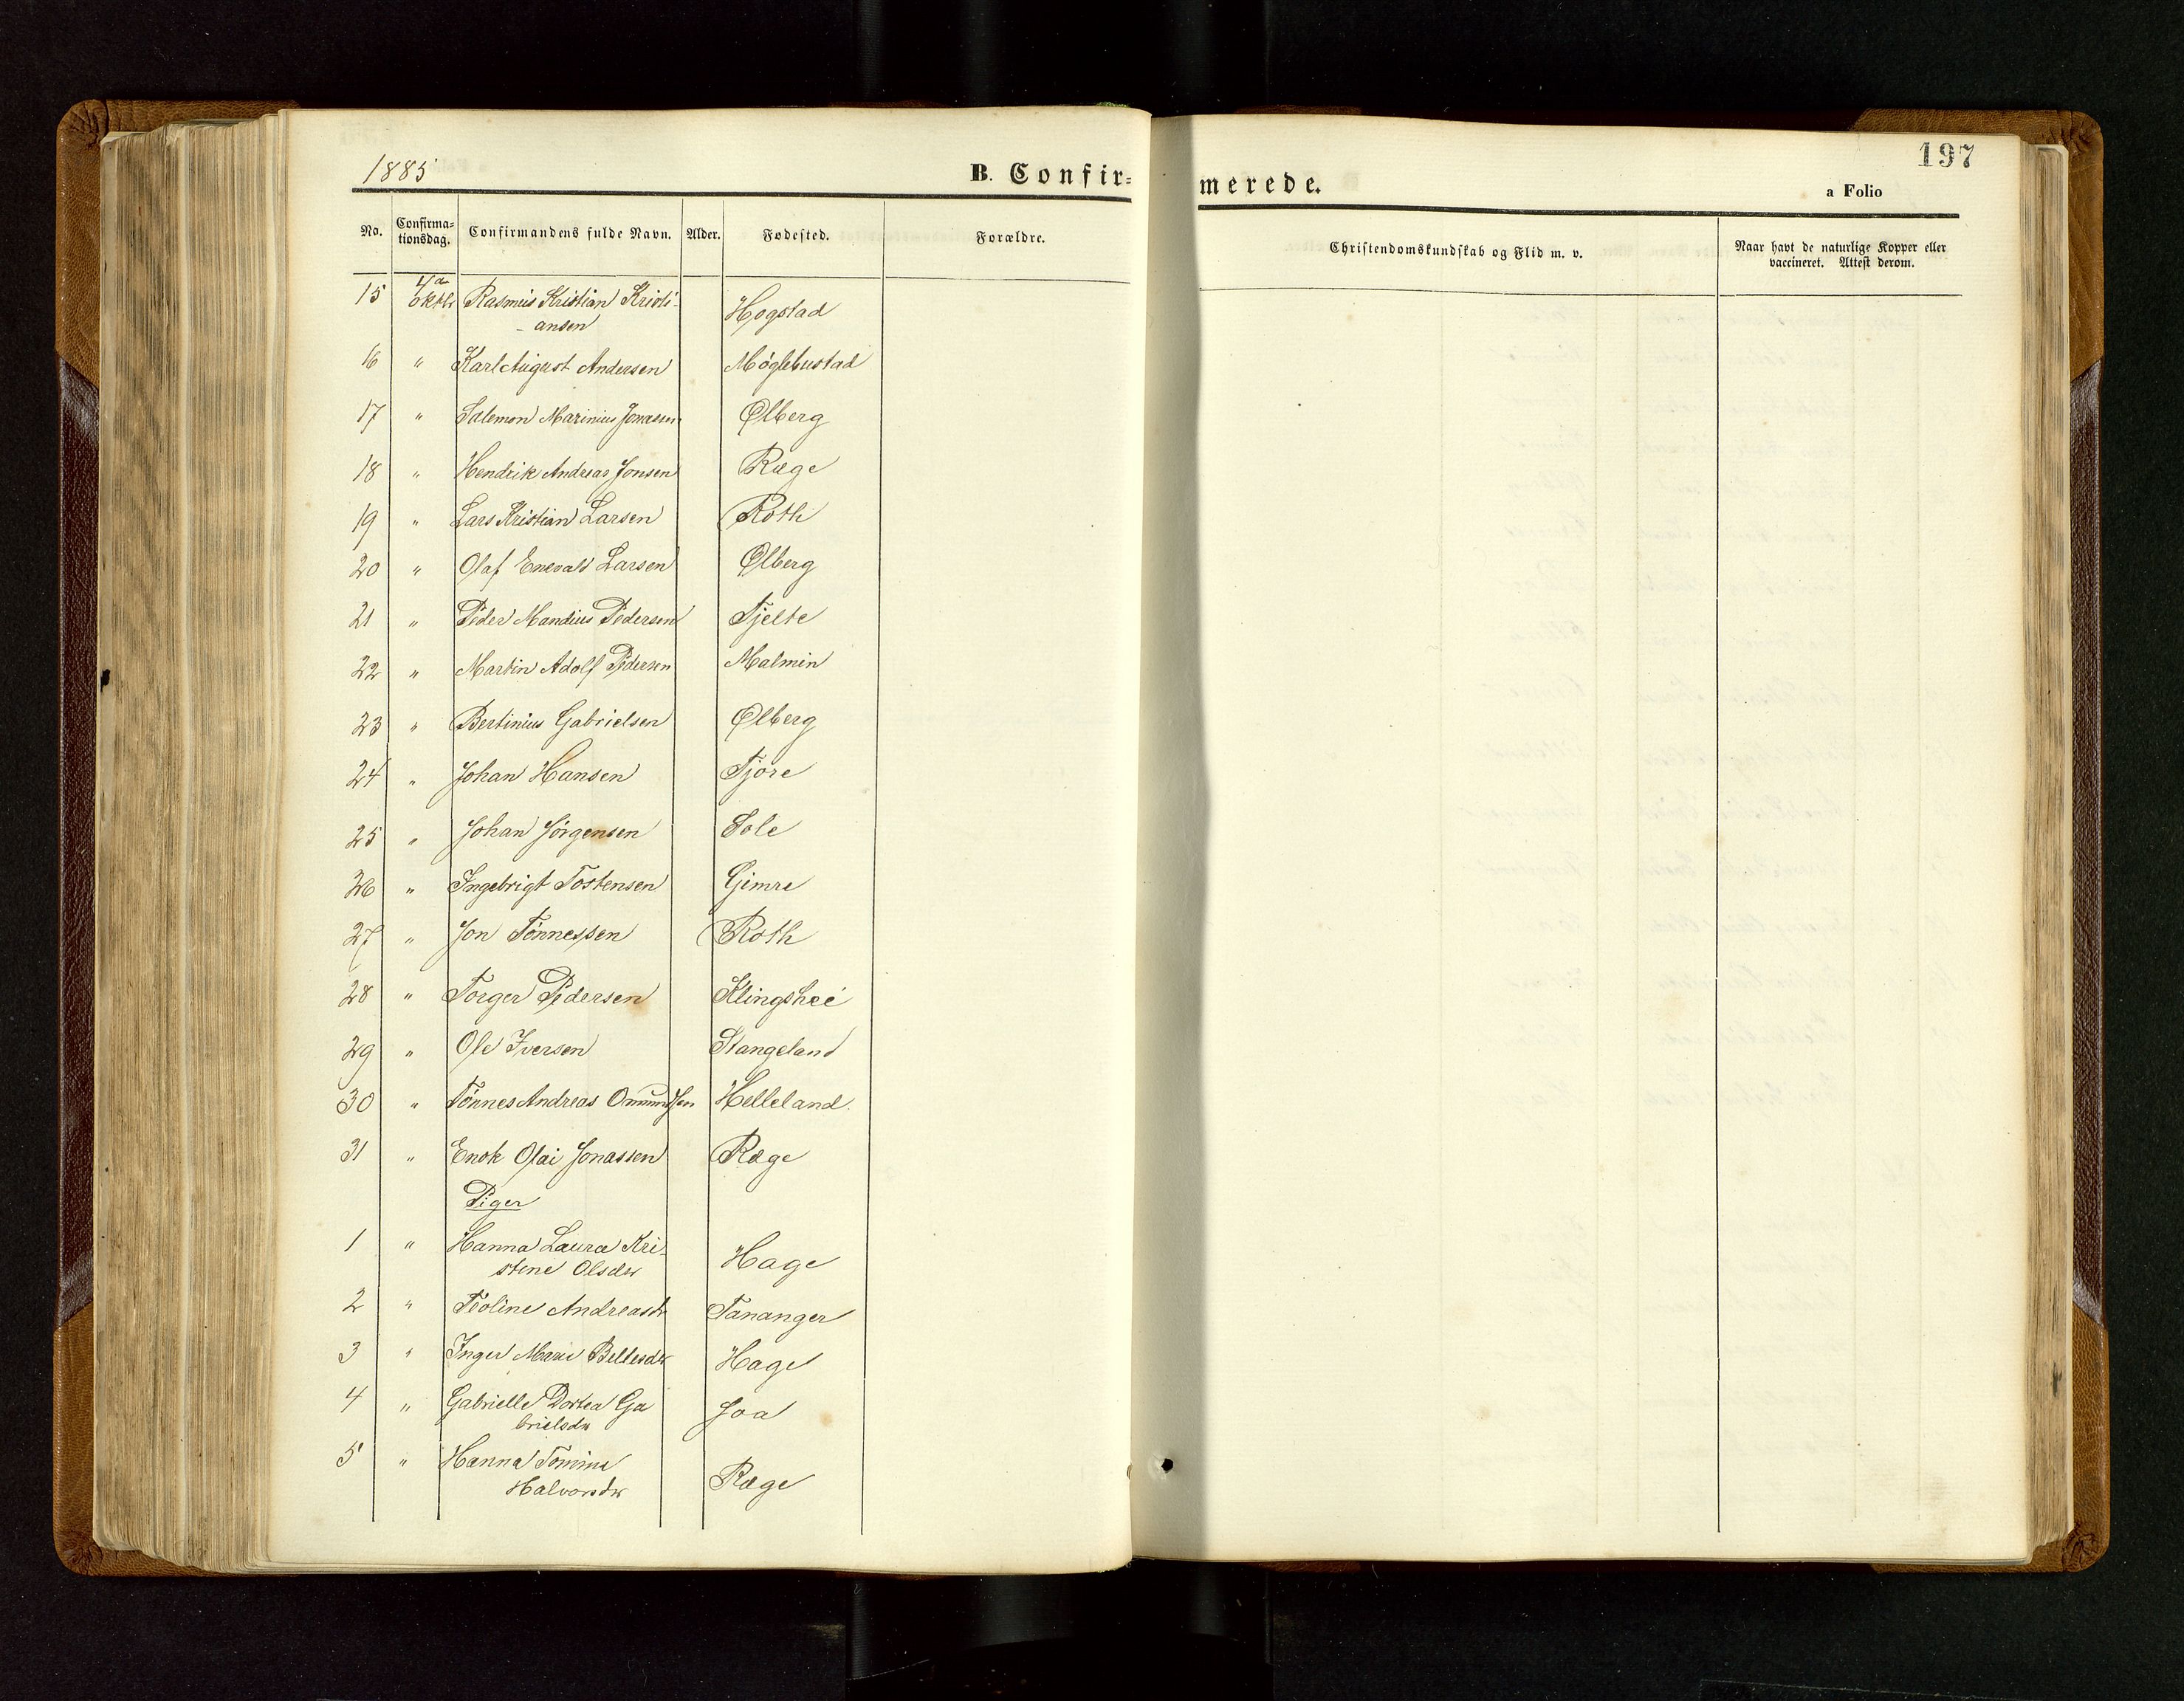 1885
B. Confir=
merede.
197
a Folio
No. Confirma= tionsdag. Confirmandens fulde Navn. Alder. Fødested. Forældre. Christendomskundskab og Flid m. v. Naar havt de naturlige Kopper eller vaccineret. Attest derom.
15 4de oktbr Rasmus Kristian Kristi-
- ansen Hogstad
16 " Karl August Andersen Møglebustad
17 " Salemon Marinius Jonassen Ølberg
18 " Hendrik Andreas Jonsen Ræge
19 " Lars Kristian Larsen Roth
20 " Olaf Enevald Larsen Ølberg
21 " Peder Mandius Pedersen Tjelte
22 " Martin Adolf Pedersen Malmin
23 " Bertinius Gabrielsen Ølberg
24 " Johan Hansen Tjore
25 " Johan Jörgensen Sole
26 " Ingebrigt Tostensen Gimre
27 " Jon Tönnessen Roth
28 " Torger Pedersen Klingsheé
29 " Ole Iversen Stangeland
30 " Tönnes Andreas Ommundsen Helleland.
31 " Enok Olai Jonassen Ræge
Piger
1 " Hanna Laura Kri-
stine Olsdtr Hage
2 " Teoline Andreasdtr Tananger
3 " Inger Marie Bellesdtr Hage
4 " Gabrielle Dortea Ga
brielsdtr Joa
5 " Hanna Tomine
Halvorsdtr Ræge